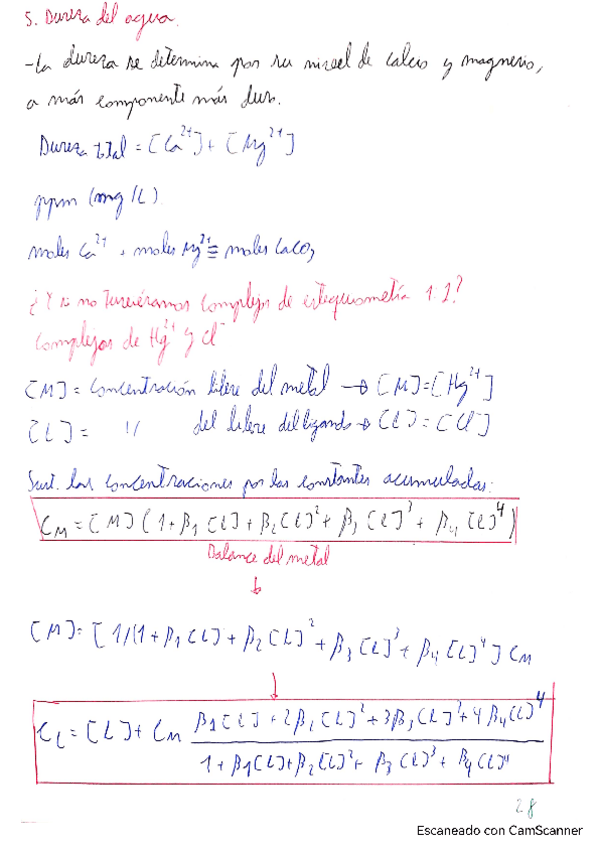 5. Dureza del agua.
-La dureza se determina por su nivel de calcio y magnesio,
a más componente más dura.
Dureza total = [Ca²⁺] + [Mg²⁺]
ppm (mg/L).
moles Ca²⁺ + moles Mg²⁺ ≡ moles CaCO₃
¿Y si no tuviéramos complejos de estequiometría 1:1?
Complejos de Hg²⁺ y Cl⁻
[M] = Concentración libre del metal → [M] = [Hg²⁺]
[L] = 11 del libre del ligando → [L] = [Cl⁻]
Sust. las concentraciones por las constantes acumuladas:
C_M = [M] (1 + β₁ [L] + β₂ [L]² + β₃ [L]³ + β₄ [L]⁴)
Balance del metal
↓
[M] = [1/(1 + β₁[L] + β₂[L]² + β₃[L]³ + β₄[L]⁴] C_M
↓
C_L = [L] + C_M (β₁[L] + 2β₂[L]² + 3β₃[L]³ + 4β₄[L]⁴) / (1 + β₁[L] + β₂[L]² + β₃[L]³ + β₄[L]⁴)
28
Escaneado con CamScanner